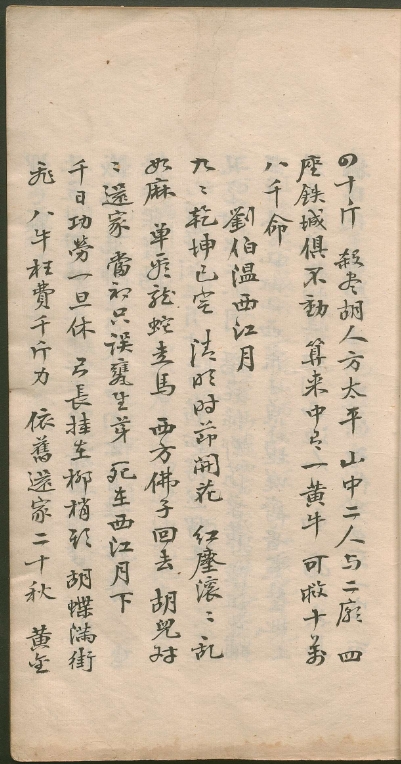 四十斤 殺尽胡人方太平 山中二人与二廟 四
座鉄城俱不動 算来中弓一黄牛 可救十萬
八千命
劉伯温西江月
九〻乾坤已定 清明时節開花 红塵滚〻乱
如麻 单看龍蛇走馬 西方佛子回去 胡兒对
〻還家 當初只误甕生芽 死在西江月下
千日功勞一旦休 弓長挂在柳梢头 胡蝶满街
飛 八牛枉費千斤力 依舊還家二十秋 黄金